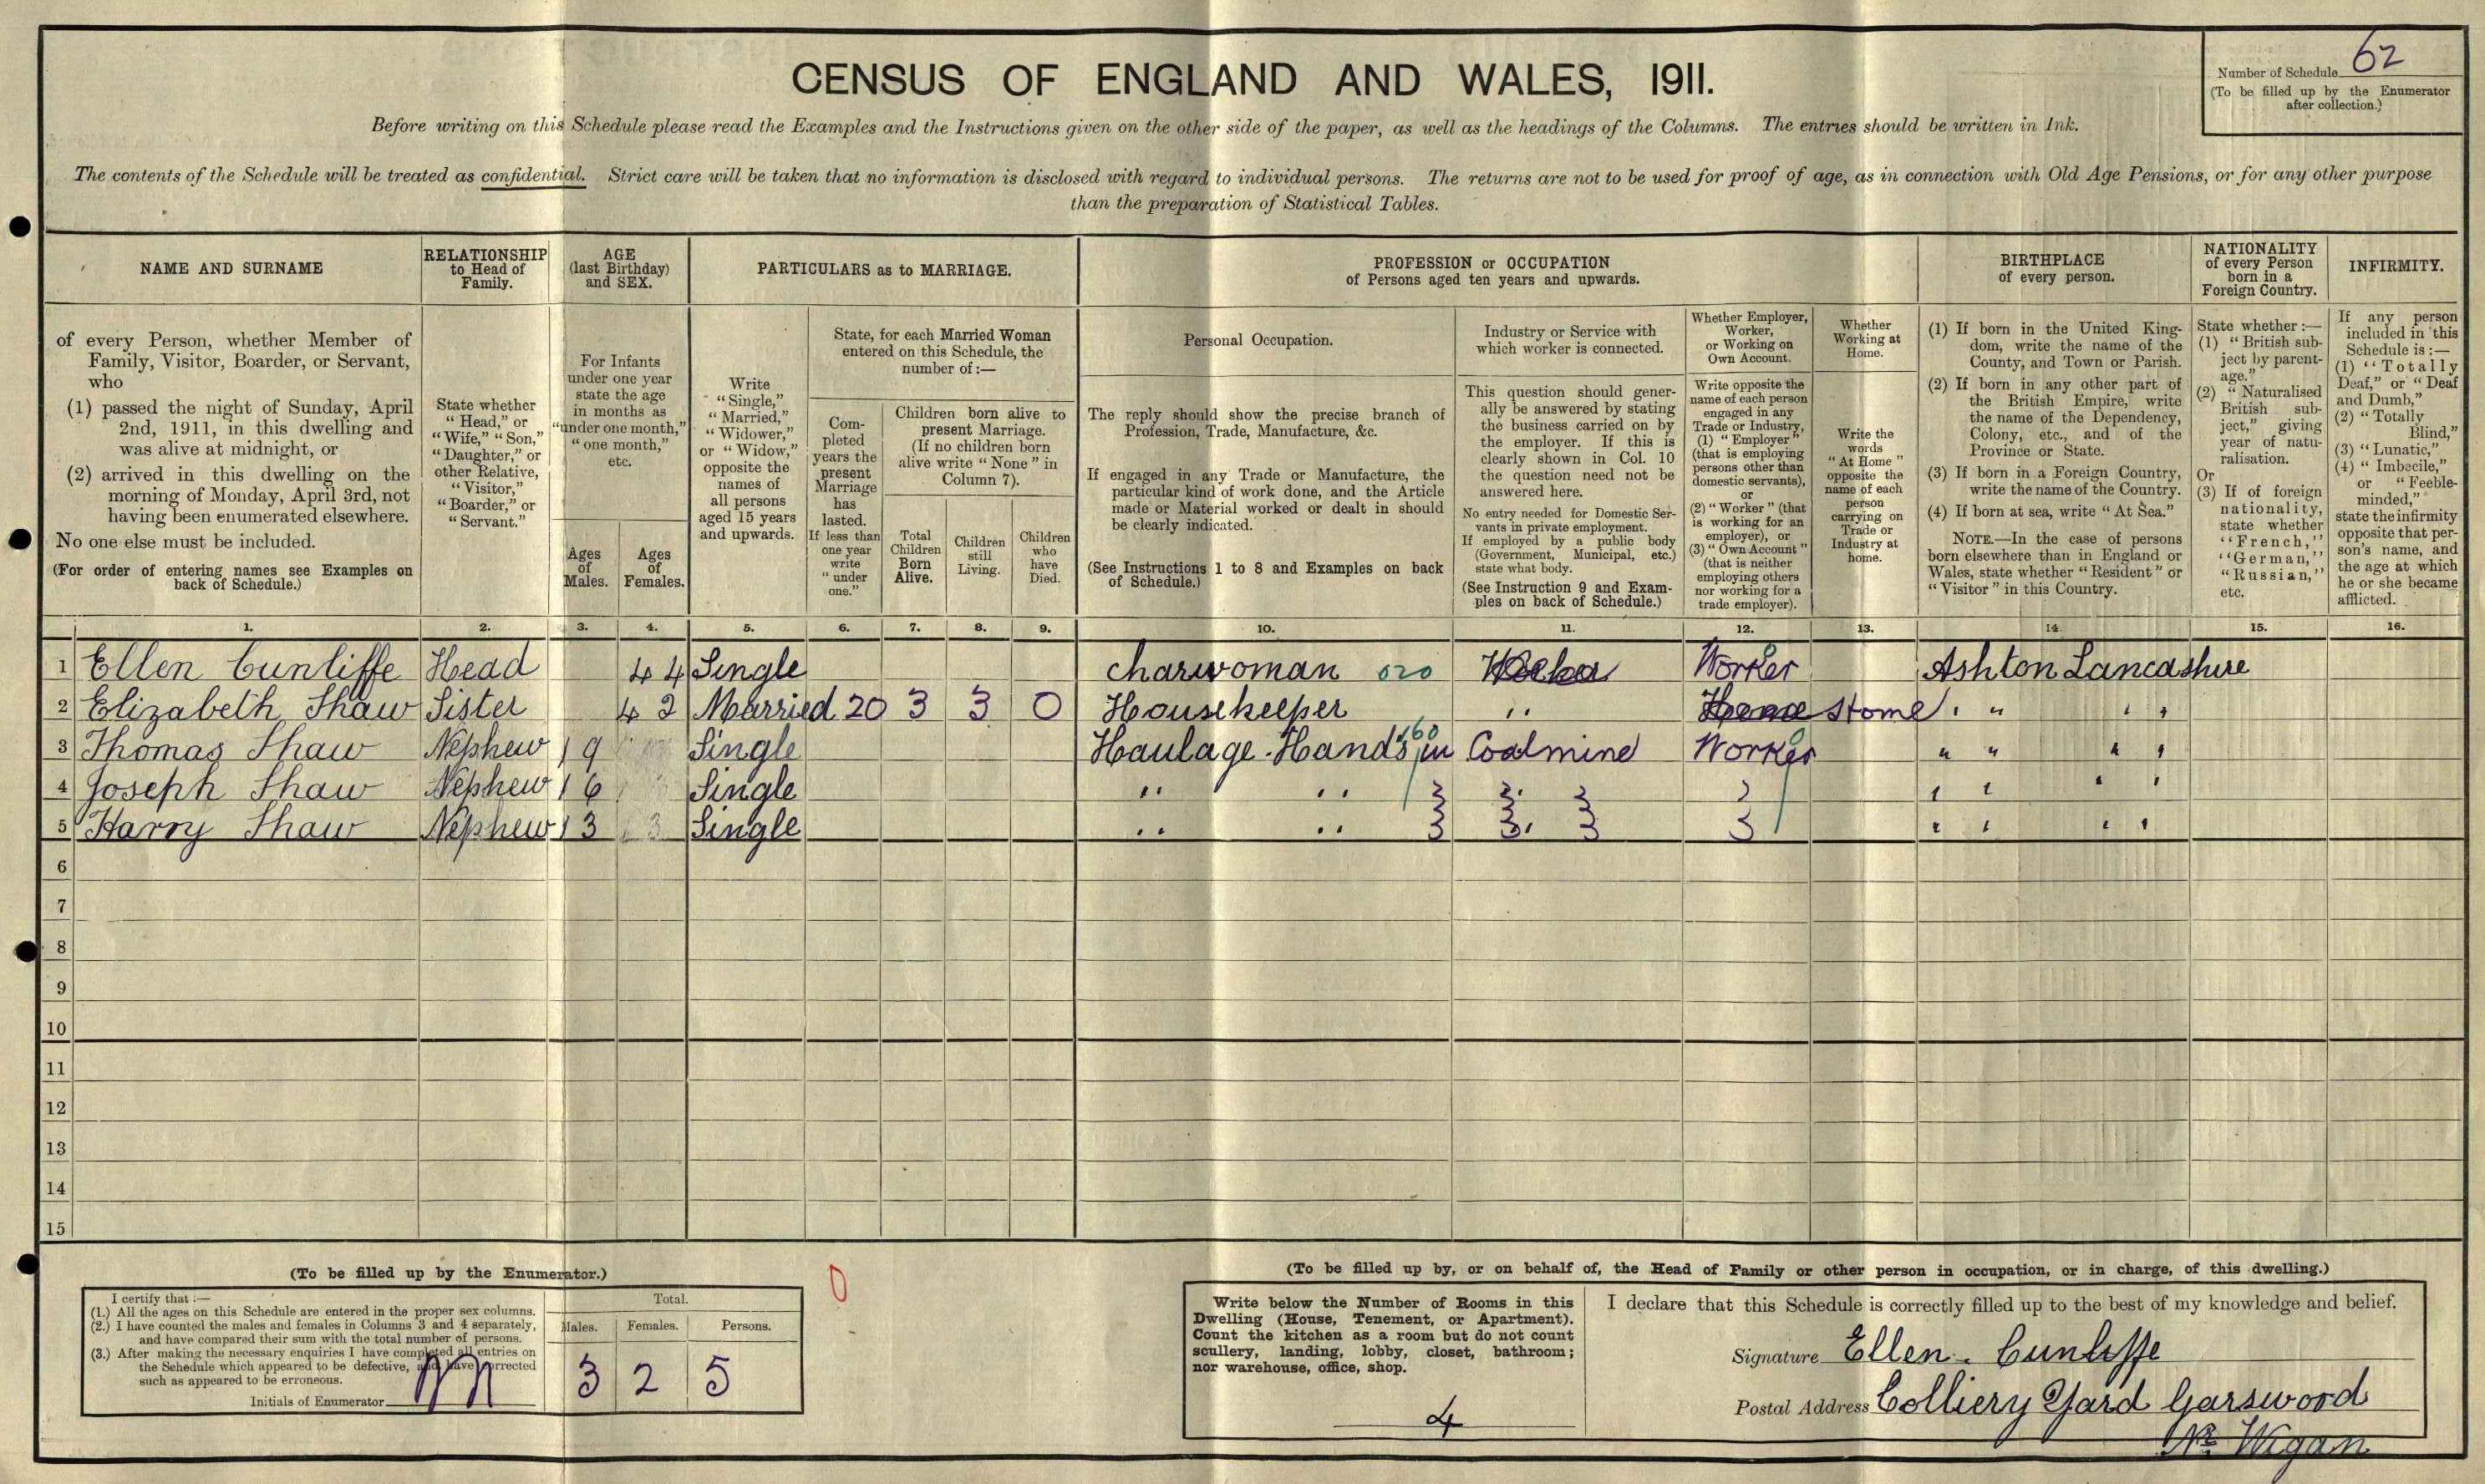 CENSUS OF ENGLAND AND WALES, 1911.
Number of Schedule 62
(To be filled up by the Enumerator
after collection.)
Before writing on this Schedule please read the Examples and the Instructions given on the other side of the paper, as well as the headings of the Columns. The entries should be written in Ink.
The contents of the Schedule will be treated as confidential. Strict care will be taken that no information is disclosed with regard to individual persons. The returns are not to be used for proof of age, as in connection with Old Age Pensions, or for any other purpose
than the preparation of Statistical Tables.
NAME AND SURNAME
of every Person, whether Member of
Family, Visitor, Boarder, or Servant,
who
(1) passed the night of Sunday, April
2nd, 1911, in this dwelling and
was alive at midnight, or
(2) arrived in this dwelling on the
morning of Monday, April 3rd, not
having been enumerated elsewhere.
No one else must be included.
(For order of entering names see Examples on
back of Schedule.)
RELATIONSHIP
to Head of
Family.
State whether
"Head," or
"Wife," "Son,"
"Daughter," or
other Relative,
"Visitor,"
"Boarder," or
"Servant."
AGE
(last Birthday)
and SEX.
For Infants
under one year
state the age
in months as
"under one month,"
"one month,"
etc.
Ages
of
Males.
Ages
of
Females.
PARTICULARS as to MARRIAGE.
Write
"Single,"
"Married,"
"Widower,"
or "Widow,"
opposite the
names of
all persons
aged 15 years
and upwards.
State, for each Married Woman
entered on this Schedule, the
number of:—
Com-
pleted
years the
present
Marriage
has
lasted.
If less than
one year
write
"under
one."
Children born alive to
present Marriage.
(If no children born
alive write "None" in
Column 7).
Total
Children
Born
Alive.
Children
still
Living.
Children
who
have
Died.
PROFESSION or OCCUPATION
of Persons aged ten years and upwards.
Personal Occupation.
The reply should show the precise branch of
Profession, Trade, Manufacture, &c.
If engaged in any Trade or Manufacture, the
particular kind of work done, and the Article
made or Material worked or dealt in should
be clearly indicated.
(See Instructions 1 to 8 and Examples on back
of Schedule.)
Industry or Service with
which worker is connected.
This question should gener-
ally be answered by stating
the business carried on by
the employer. If this is
clearly shown in Col. 10
the question need not be
answered here.
No entry needed for Domestic Ser-
vants in private employment.
If employed by a public body
(Government, Municipal, etc.)
state what body.
(See Instruction 9 and Exam-
ples on back of Schedule.)
Whether Employer,
Worker,
or Working on
Own Account.
Write opposite the
name of each person
engaged in any
Trade or Industry,
(1) "Employer"
(that is employing
persons other than
domestic servants),
or
(2) "Worker" (that
is working for an
employer), or
(3) "Own Account"
(that is neither
employing others
nor working for a
trade employer).
Whether
Working at
Home.
Write the
words
"At Home"
opposite the
name of each
person
carrying on
Trade or
Industry at
home.
BIRTHPLACE
of every person.
(1) If born in the United King-
dom, write the name of the
County, and Town or Parish.
(2) If born in any other part of
the British Empire, write
the name of the Dependency,
Colony, etc., and of the
Province or State.
(3) If born in a Foreign Country,
write the name of the Country.
(4) If born at sea, write "At Sea."
NOTE.—In the case of persons
born elsewhere than in England or
Wales, state whether "Resident" or
"Visitor" in this Country.
NATIONALITY
of every Person
born in a
Foreign Country.
State whether:—
(1) "British sub-
ject by parent-
age."
(2) "Naturalised
British sub-
ject," giving
year of natu-
ralisation.
Or
(3) If of foreign
nationality,
state whether
"French,"
"German,"
"Russian,"
etc.
INFIRMITY.
If any person
included in this
Schedule is:—
(1) "Totally
Deaf," or "Deaf
and Dumb,"
(2) "Totally
Blind,"
(3) "Lunatic,"
(4) "Imbecile,"
or "Feeble-
minded,"
state the infirmity
opposite that per-
son's name, and
the age at which
he or she became
afflicted.
1. 2. 3. 4. 5. 6. 7. 8. 9. 10. 11. 12. 13. 14 15. 16.
1 Ellen Cunliffe Head 44 Single charwoman 020 Worker Ashton Lancashire
2 Elizabeth Shaw Sister 42 Married 20 3 3 0 Housekeeper " Home Home " " " "
3 Thomas Shaw Nephew 19 Single Haulage Hands in 160 Coalmine Worker " " " "
4 Joseph Shaw Nephew 16 Single " " " " " " " "
5 Harry Shaw Nephew 13 Single " " " " " " " "
6
7
8
9
10
11
12
13
14
15
(To be filled up by the Enumerator.)
I certify that:—
(1.) All the ages on this Schedule are entered in the proper sex columns.
(2.) I have counted the males and females in Columns 3 and 4 separately,
and have compared their sum with the total number of persons.
(3.) After making the necessary enquiries I have completed all entries on
the Schedule which appeared to be defective, and have corrected
such as appeared to be erroneous.
Initials of Enumerator
Total.
Males. Females. Persons.
3 2 5
(To be filled up by, or on behalf of, the Head of Family or other person in occupation, or in charge, of this dwelling.)
Write below the Number of Rooms in this
Dwelling (House, Tenement, or Apartment).
Count the kitchen as a room but do not count
scullery, landing, lobby, closet, bathroom;
nor warehouse, office, shop.
4
I declare that this Schedule is correctly filled up to the best of my knowledge and belief.
Signature Ellen. Cunliffe
Postal Address Colliery Yard Garswood
Nr Wigan